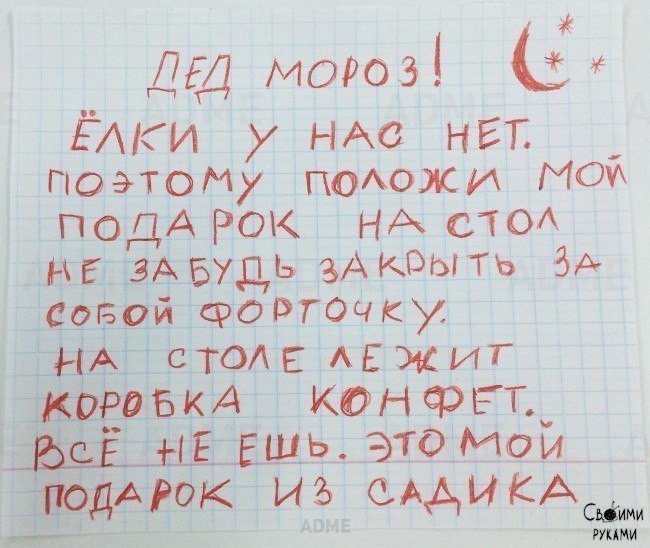 ДЕД МОРОЗ!
ЁЛКИ У НАС НЕТ.
ПОЭТОМУ ПОЛОЖИ МОЙ
ПОДАРОК НА СТОЛ
НЕ ЗАБУДЬ ЗАКРЫТЬ ЗА
СОБОЙ ФОРТОЧКУ.
НА СТОЛЕ ЛЕЖИТ
КОРОБКА КОНФЕТ.
ВСЁ НЕ ЕШЬ. ЭТО МОЙ
ПОДАРОК ИЗ САДИКА
ADME
СВОИМИ
РУКАМИ